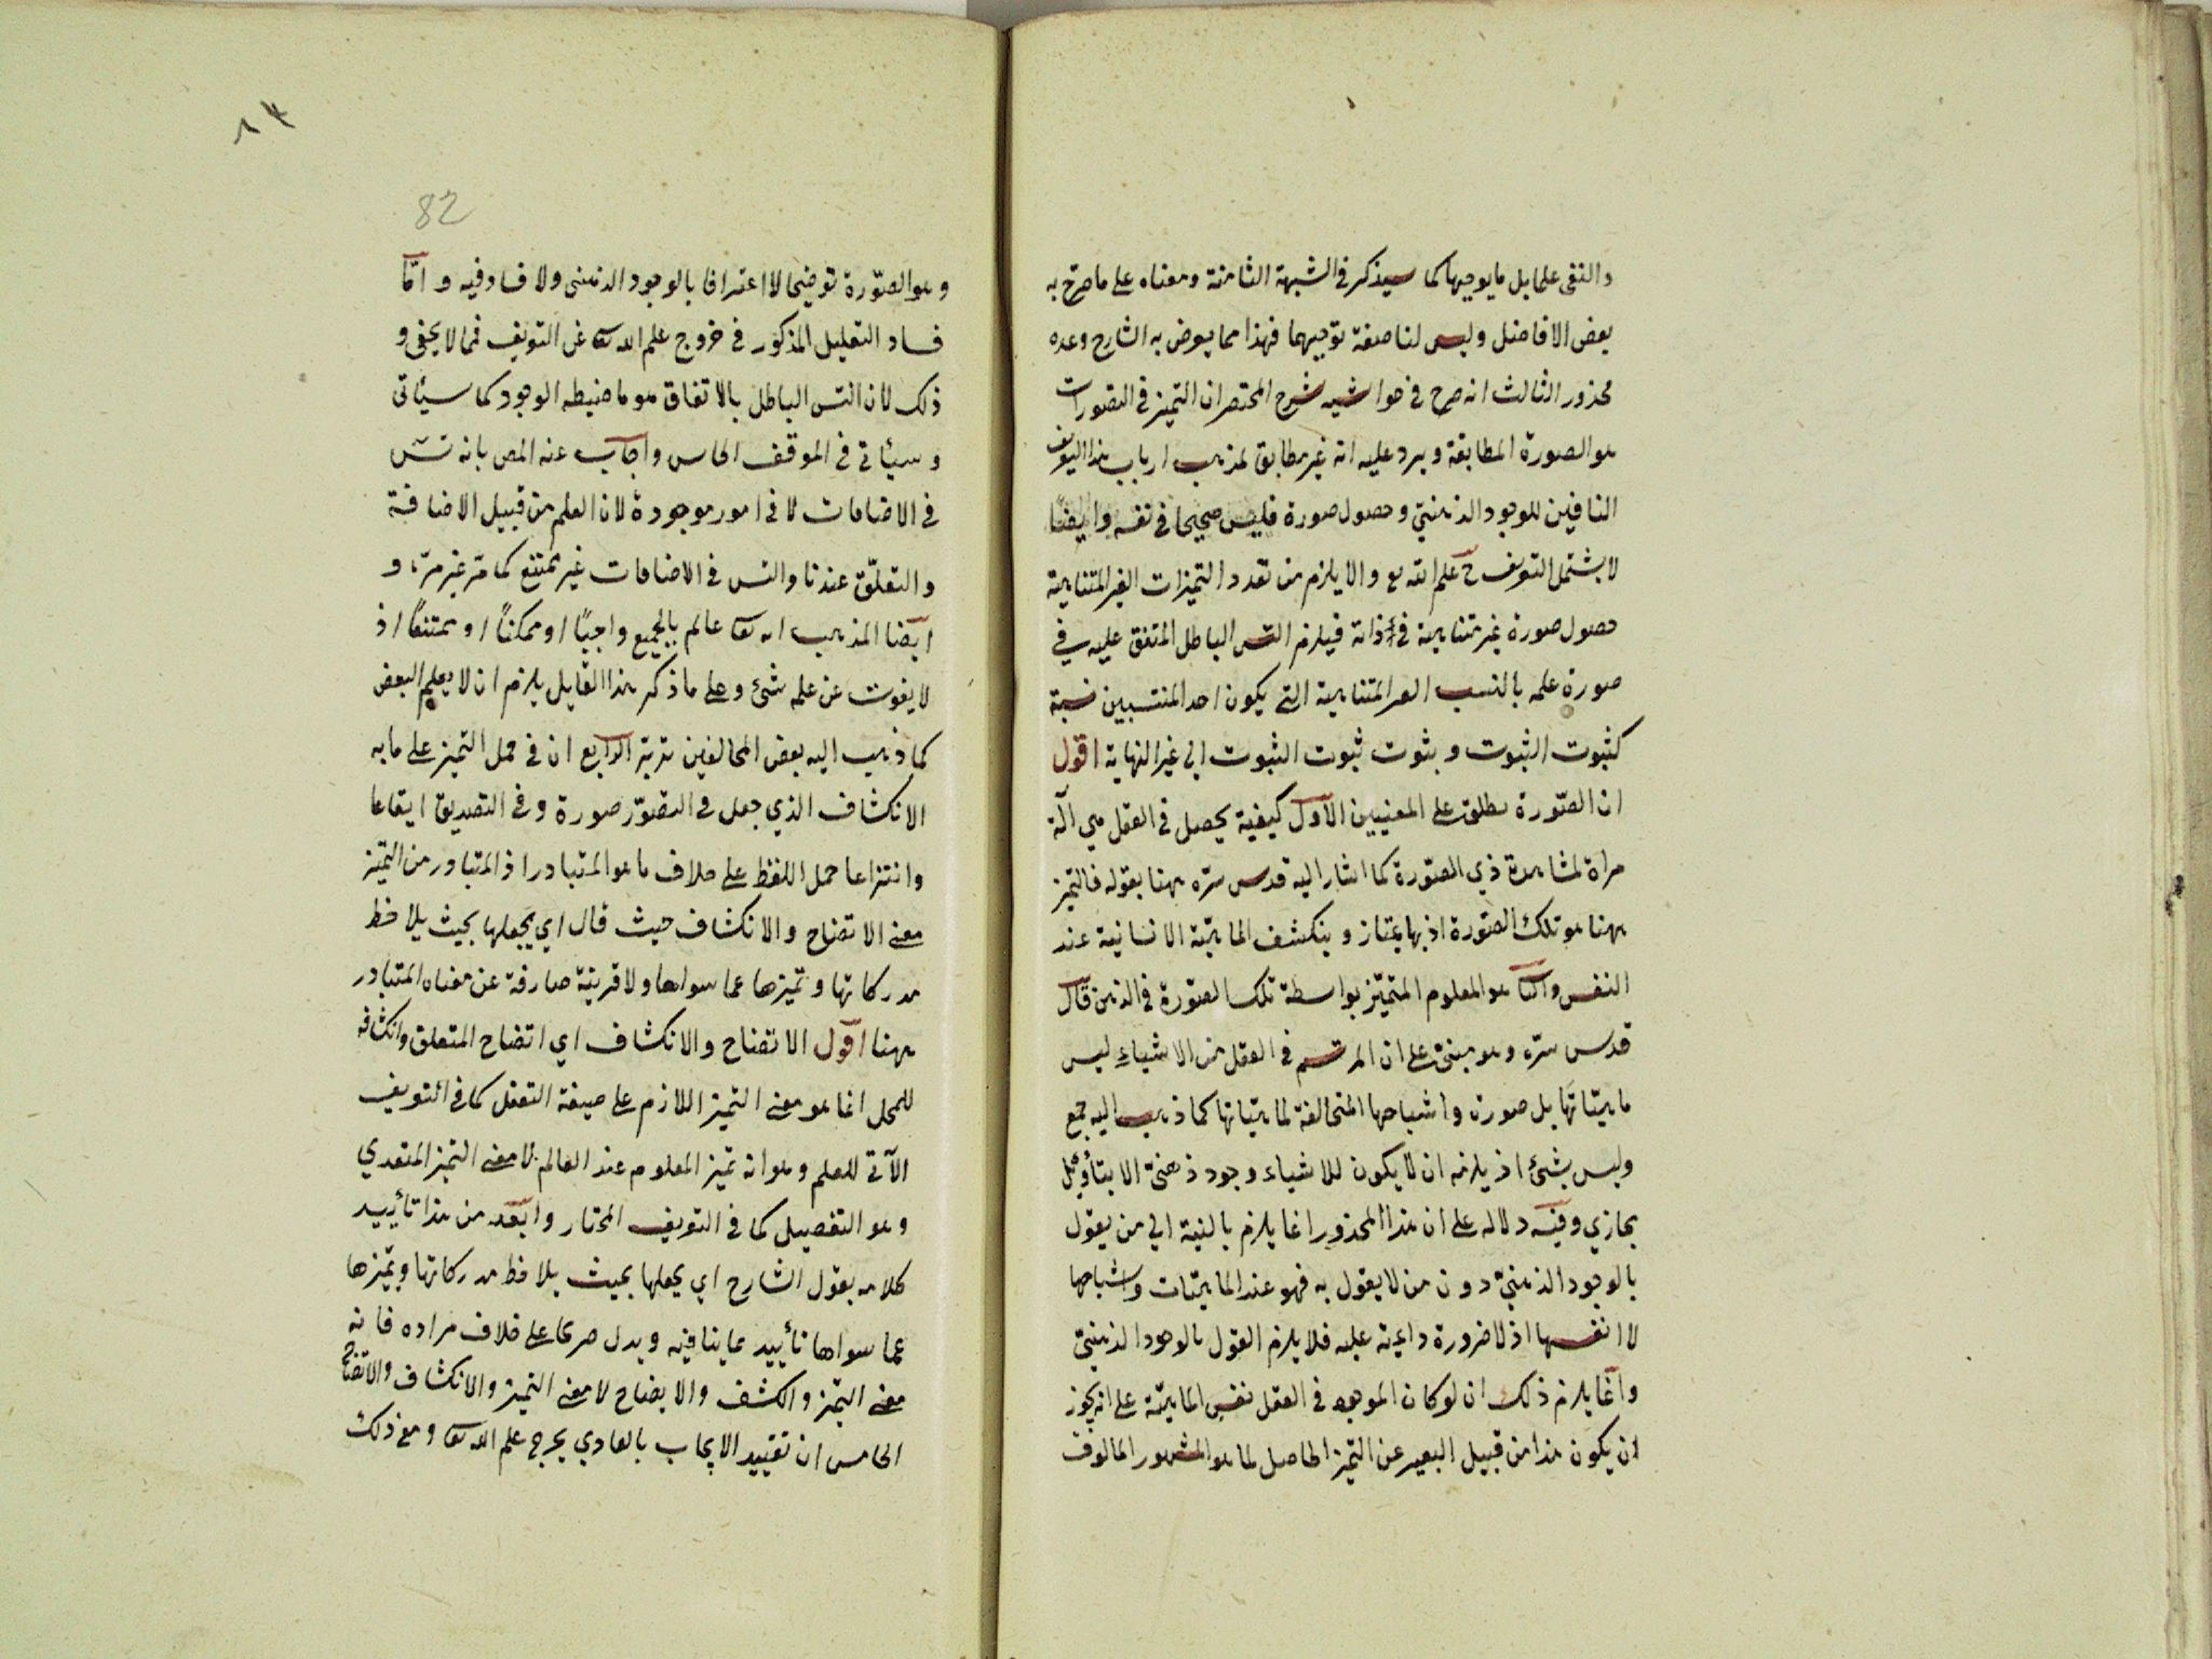 والنفى علما بل ما يوجبها كما سيذكر في الشبهة الثامنة ومعناه على ما صرح به
بعض الافاضل وليس لنا صفة توجبهما فهذا مما يعرض به الشارح وعده
محذور الثالث انه صرح في حواشيه شرح المختصر ان التميز في التصورات
هو الصورة المطابقة ويرد عليه انه غير مطابق لمذهب ارباب هذا التعريف
النافين للوجود الذهنيّ وحصول صورة فليس صحيحا في نفسه وايضًا
لا يشتمل التعريف ح علم الله تع والا يلزم من تعدد التميزات الغير المتناهية
حصول صورة غير متناهية في ذاته فيلزم التس الباطل المتفق عليه في
صورة علمه بالنسب الغير المتناهية التي يكون احد المنتسبين نسبة
كثبوت الثبوت وثبوت ثبوت الثبوت الى غير النهاية اقول
ان الصّورة يطلق على المعنيين الاول كيفية يحصل في العقل هي آلة
مراة لمشاهدة ذي الصّورة كما اشار اليه قدس سرّه ههنا بقوله فالتميز
ههنا هو تلك الصّورة اذ بها يمتاز وينكشف الماهيّة الانسانية عند
النفس والثا هو المعلوم المتميّز بواسطة تلك الصّورة في الذهن قال
قدس سرّه وهو مبنىّ على ان المرتسم في العقل من الاشياء ليس
ماهيّاتها بل صورة واشباحها المتخالفة لماهيّاتها كما ذهب اليه جمع
وليس بشئ اذ يلزمه ان لا يكون للاشياء وجود ذهنىّ الا بتأويل
مجازي وفيه دلاله على ان هذا المحذور انما يلزم بالنسبة الى من يقول
بالوجود الذهنيّ دون من لا يقول به فهو عند الماهيّات واشباحها
لا انفسها اذ لا ضرورة داعية عليه فلا يلزم القول بالوجود الذهنيّ
وانما يلزم ذلك ان لو كان الموجود في العقل نفس الماهيّة على انه يجوز
ان يكون هذا من قبيل التعبير عن التميز الحاصل لما هو المشهور المالوف
٨٢
82
وهو الصّورة توضيحا لا اعترافا بالوجود الذهنى ولا فساد فيه و امّا
فساد التعليل المذكور في خروج علم الله تعا عن التعريف فمما لا يخفى و
ذلك لان التس الباطل بالاتفاق هو ما ضبطه الوجود كما سيأتى
وسيأتي في الموقف الخامس واجاب عنه المص بانه تس
في الاضافات لا في امور موجودة لان العلم من قبيل الاضافة
والتعلّق عندنا والتس في الاضافات غير ممتنع كما مرّ غير مرّة و
ايضا المذهب انه تعا عالم بالجميع واجبًا او ممكنًا او ممتنعًا اذ
لا يفوت عن علمه شئ وعلى ما ذكر هذا القايل يلزم ان لا يعلم البعض
كما ذهب اليه بعض المخالفين الرابع ان في حمل التميز على ما به
الانكشاف الذي جعل في التصوّر صورة وفي التصديق ايقاعا
وانتزاعا حمل اللفظ على خلاف ما هو المتبادر اذ المتبادر من التميّز
معنى الاتضاح والانكشاف حيث قال اي يجعلها بحيث يلاحظ
مدركاتها وتميزها عما سواها ولا قرينة صارفة عن معناه المتبادر
ههنا اقول الاتضاح والانكشاف اي اتضاح المتعلق وانكشافه
للمحل انما هو معنى التميز اللازم على صيغة التفعل كما في التعريف
الآتي للعلم وهو انه تميز المعلوم عند العالم لا معنى التميز المتعدي
وهو التفصيل كما في التعريف المختار وابعد من هذا تأييد
كلامه بقول الشارح اي يجعلها بحيث يلاحظ مدركاتها ويميّزها
عما سواها تأييد بما ينافيه ويدل صريحا على خلاف مراده فانه
معنى التميز والكشف والايضاح لا معنى التميز والانكشاف والاتضاح
الخامس ان تقييد الايجاب بالعادي يخرج علم الله تعا ومع ذلك